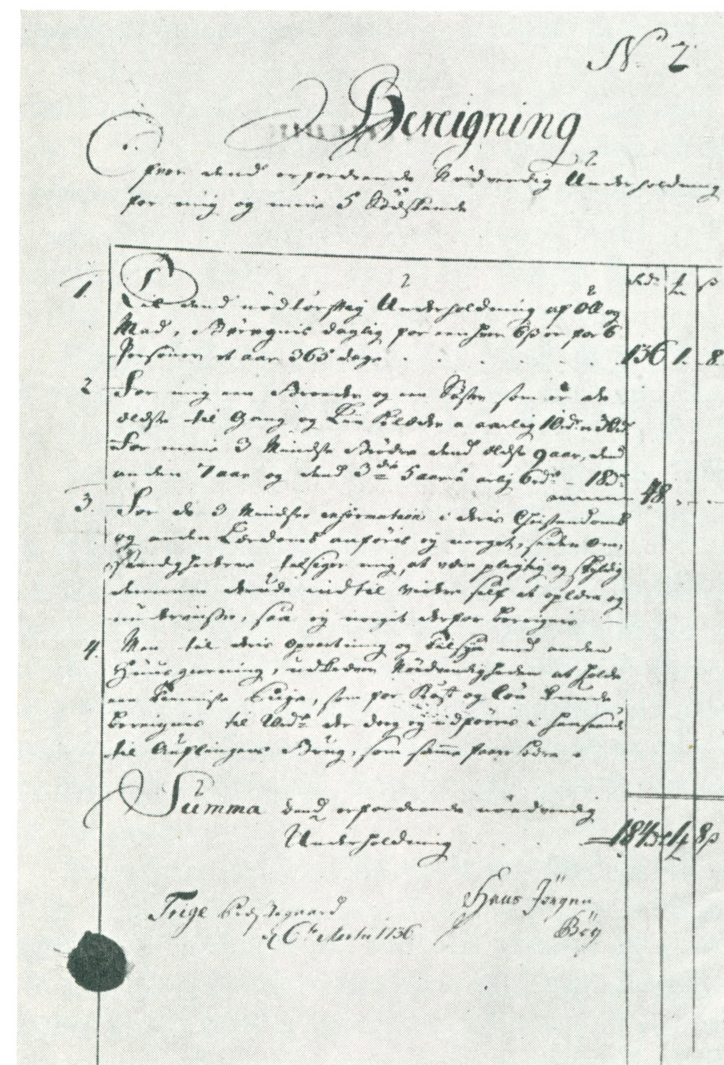 No 2
Bereigning
Over dend erfordrende Nödvendig Underholdning
for mig og mine 5 Södskende
Rdr. ℳ ß
1. Til dend nödtörftig Underholdning af Öll og
Mad, Beregnis daglig for een hver 6ß er for 6
Personer et aar 365 dage 136 1 8
2 For mig een Broder og een Söster som er de
eldste til Gang og Linklæder a aarlig 10rd. er 30rd.
For mine 3 Mindste Brödre dend eldste 9 aar, dend
anden 7 aar og dend 3die 5 aar a arlig 6rd. - 18rd.
48
3. For de 3 Mindstes information i deris Christendom
og anden Lærdom anföris ej noget, siden Om,
stændighederne tilsiger mig, at være pligtig og skyldig
dennem derude indtil videre self at oplære og
underviise, saa ej noget derfor beregnis
4. Men til deris opvartning og tilsyn med anden
Huusgierning, udkræver Nödvendigheden at holde
een Pige, som for Kost og Lön kunde
bereignis til de dog ej udföris i henseende
til Auflingens Brug, som samme
Summa dend erfordrende nödvendig
Underholdning 184 rd 1 ℳ 8ß
Trige
d 6te Martii 1736
Hans Jörgen
Böy